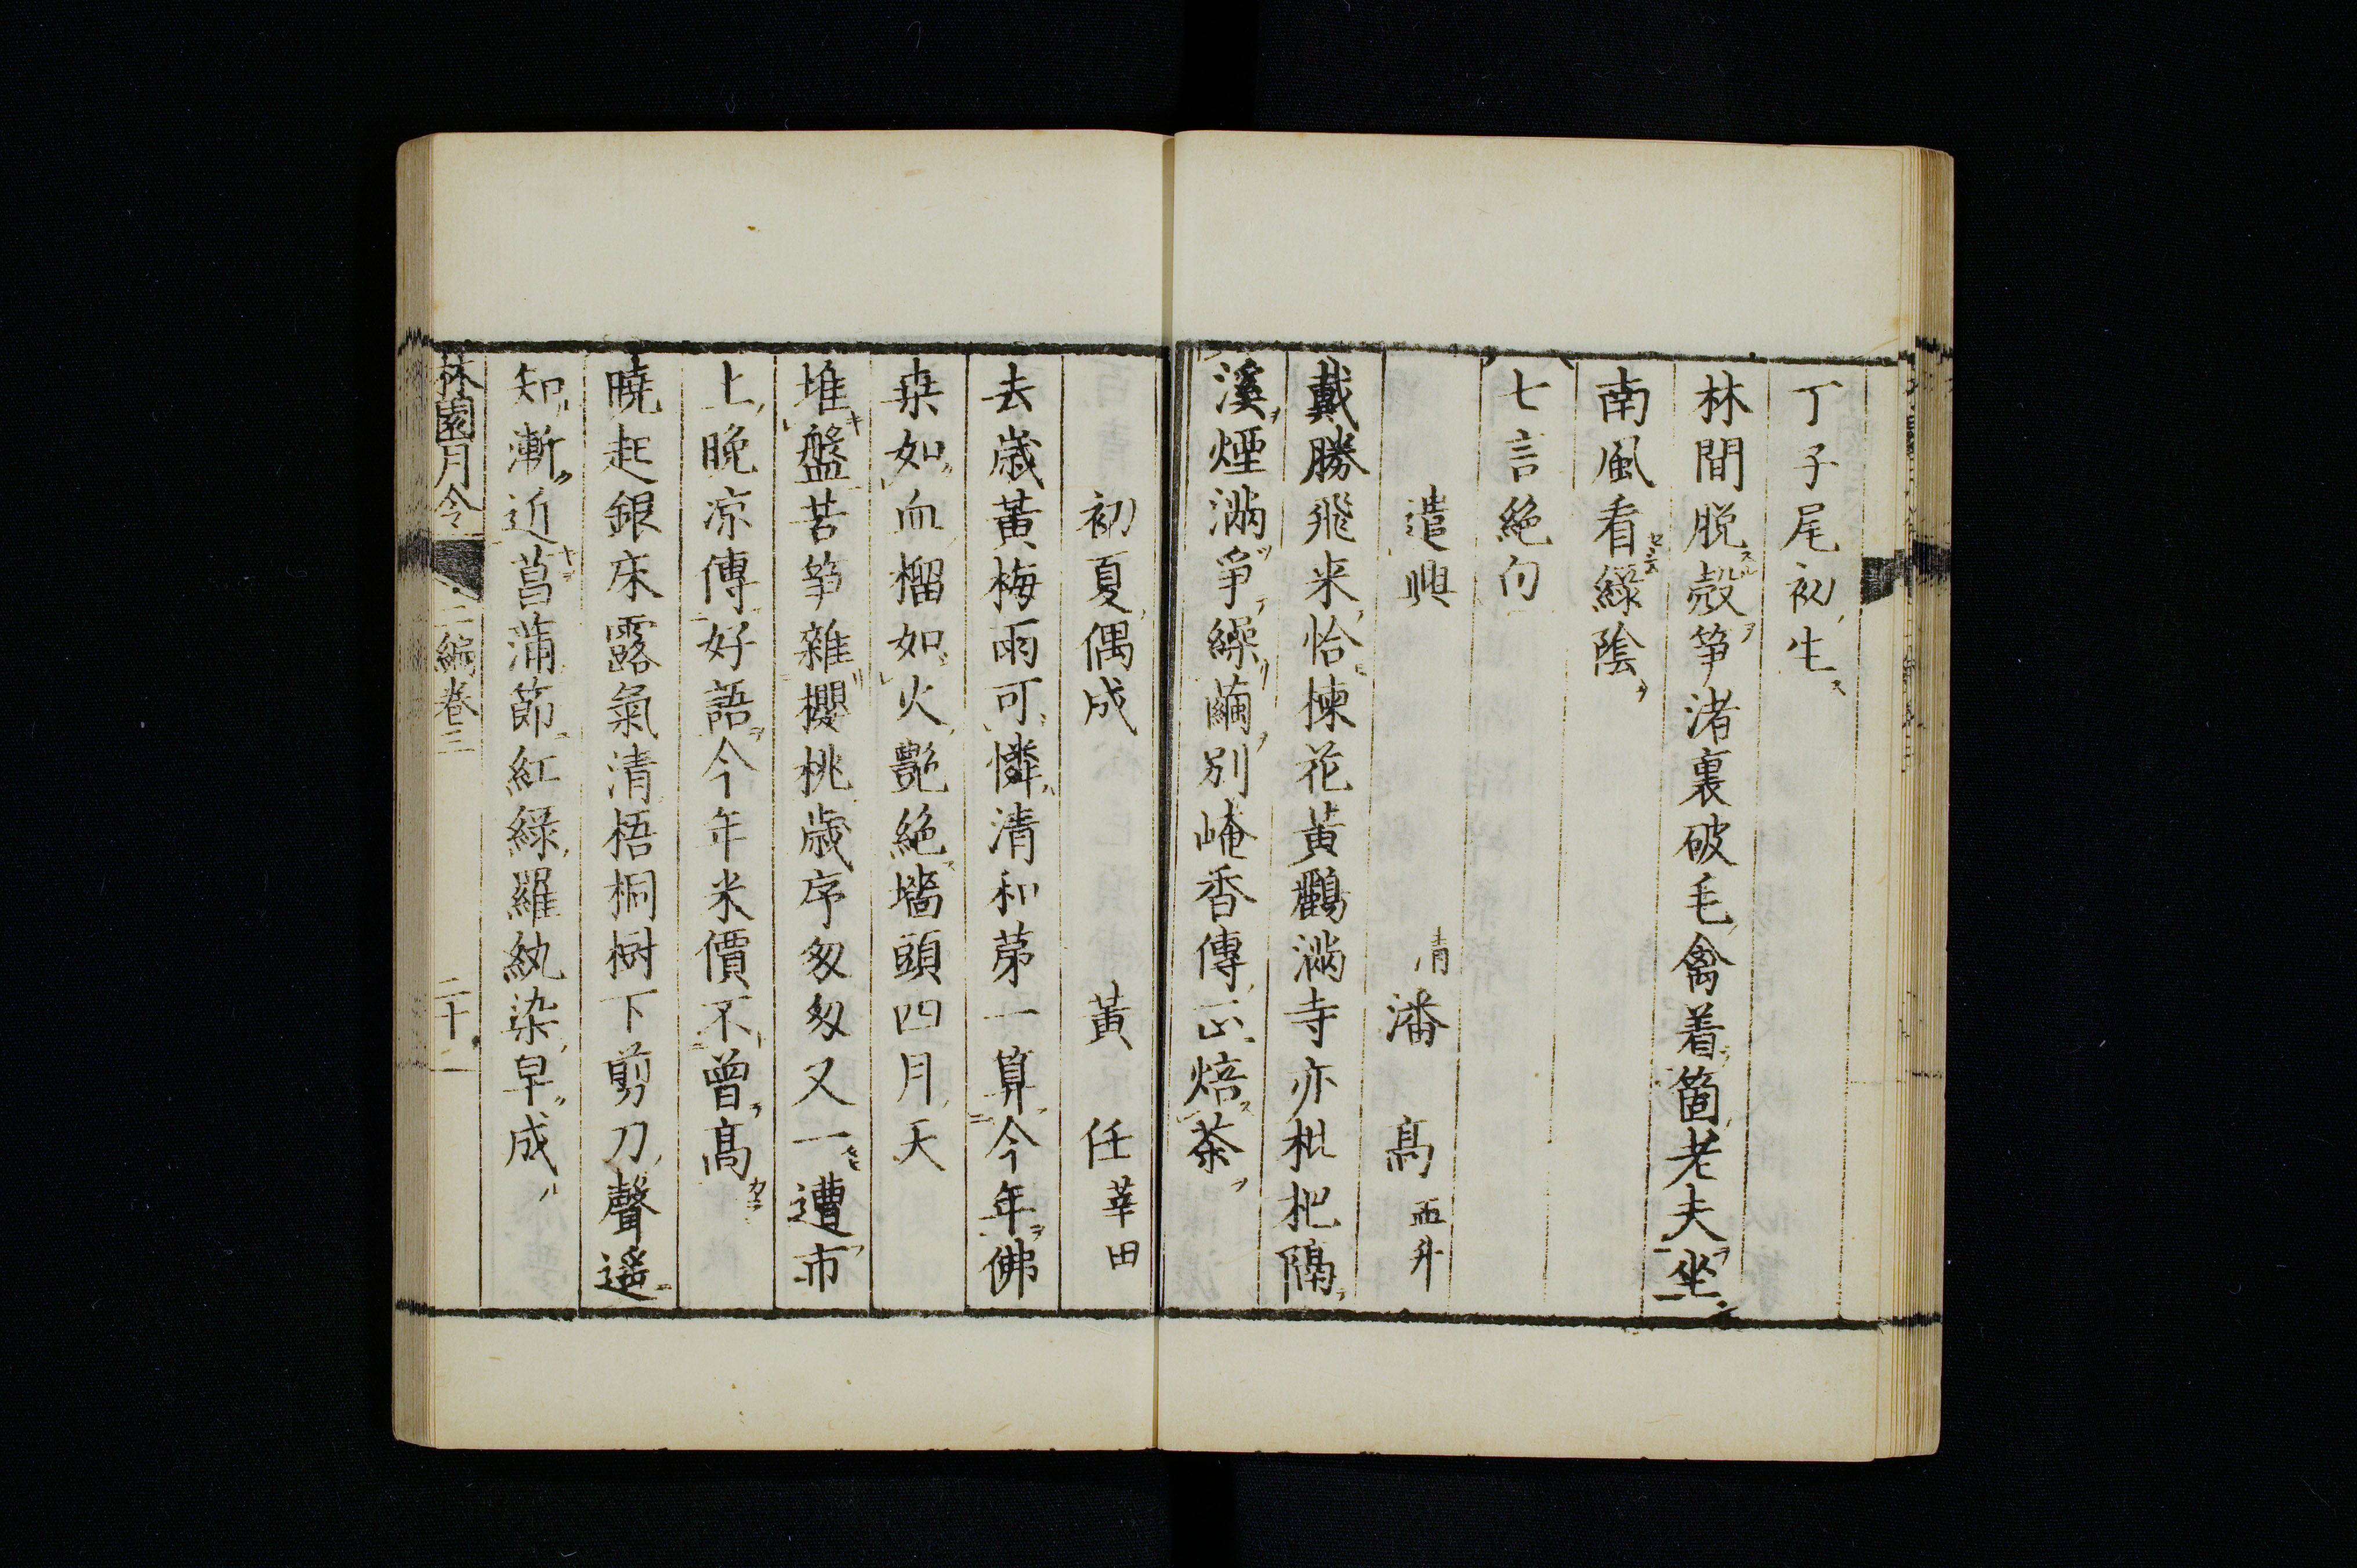 丁子尾初生
林間脱殻筍渚裏破毛禽着箇老夫坐
南風看綠陰
七言絶句
遣興 清 潘 髙
戴勝飛来恰楝花黄鸝滿寺亦枇杷隔
溪煙滿爭繰繭別崦香傳正焙茶
初夏偶成 黃 任 莘田
去歳黃梅雨可憐清和苐一算今年佛
桒如血榴如火艶絶墻頭四月天
堆盤苦筍雜櫻桃歳序匆匆又一遭市
上晩凉傳好語今年米價不曾髙
曉起銀床露氣清梧桐樹下剪刀聲遥
知漸近菖蒲節紅綠羅紈染早成
林園月令 二編卷三 二十二